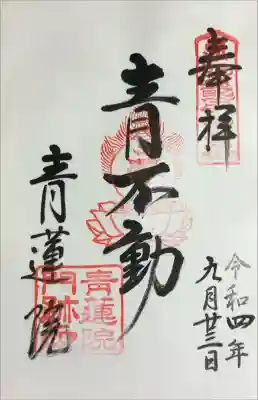 奉拝
令和四年
九月廿三日
青不動
青蓮院
青蓮院
門跡